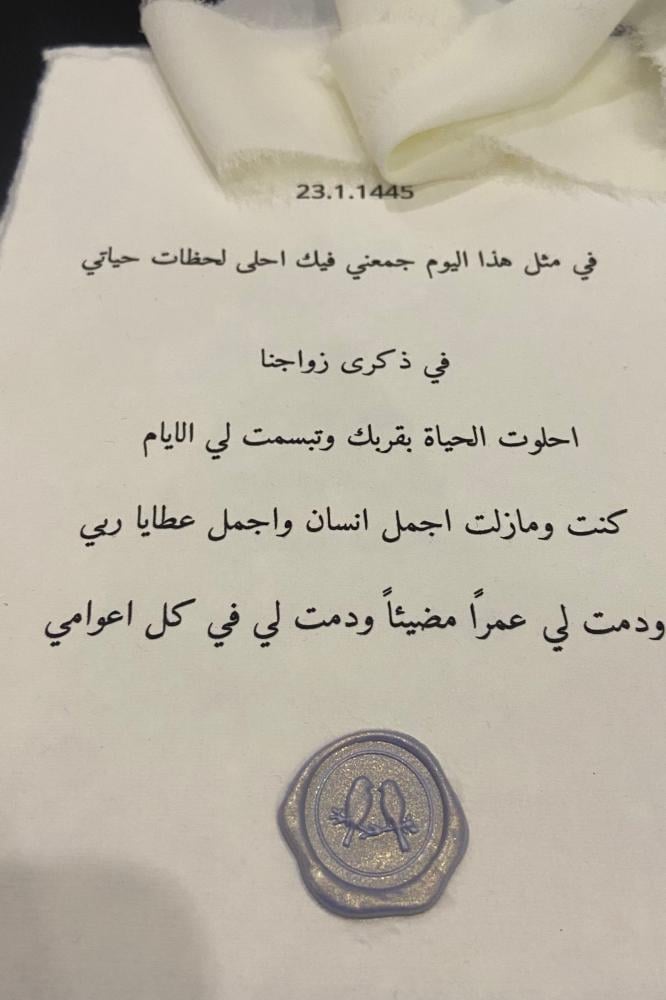 23.1.1445
في مثل هذا اليوم جمعني فيك احلى لحظات حياتي
في ذكرى زواجنا
احلوت الحياة بقربك وتبسمت لي الايام
كنت ومازلت اجمل انسان واجمل عطايا ربي
ودمت لي عمراً مضيئاً ودمت لي في كل اعوامي